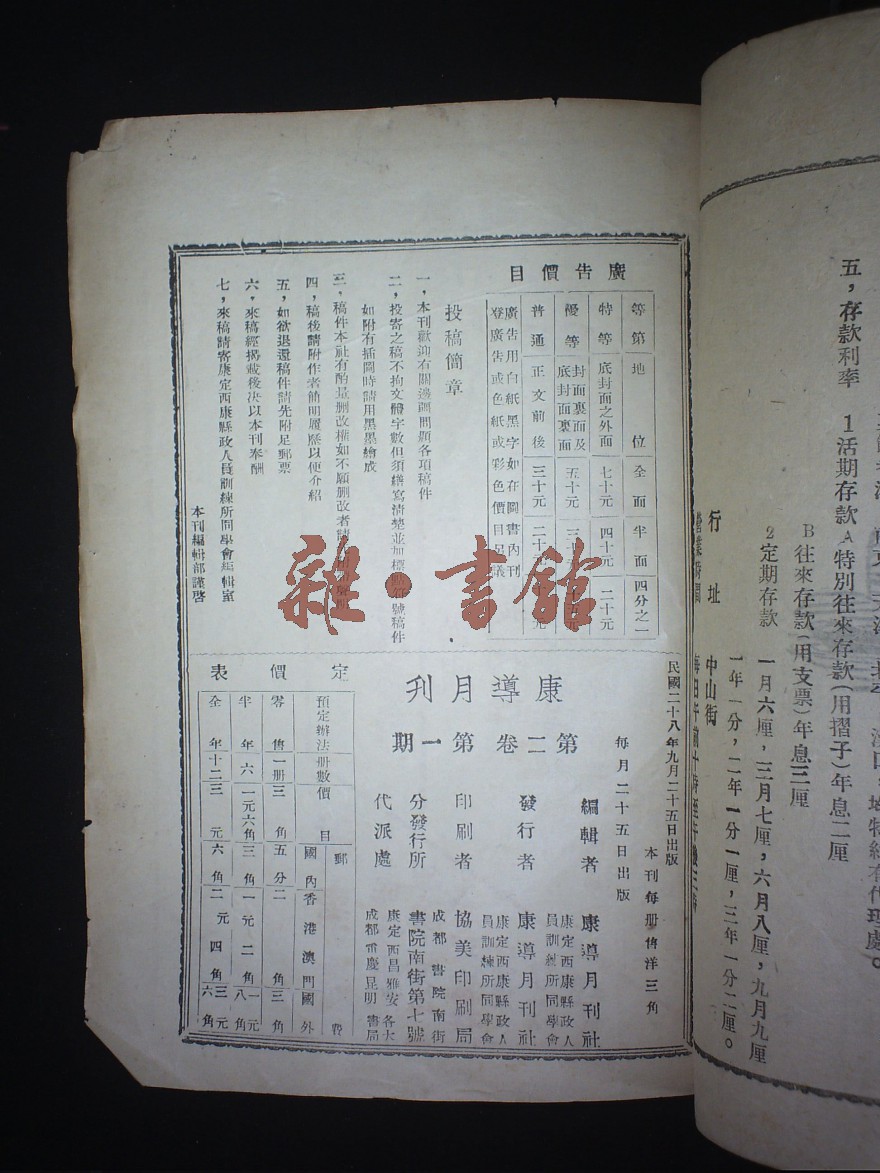 廣告價目
等第 地位 全面 半面 四分之一
特等 底封面之外面 七十元 四十元 二十元
優等 封面裏面及底封面裏面 五十元
普通 正文前後 三十元
廣告用白紙黑字如在圖書內刊
登廣告或色紙或彩色價目另議
投稿簡章
一，本刊歡迎有關邊疆問題各項稿件
二，投寄之稿不拘文體字數但須繕寫清楚並加標點符號稿件
如附有插圖時請用黑墨繪成
三，稿件本社有酌量删改權如不願删改者請
四，稿後請附作者簡明履歷以便介紹
五，如欲退還稿件請先附足郵票
六，來稿經揭載後決以本刊奉酬
七，來稿請寄康定西康縣政人員訓練所同學會編輯室
本刊編輯部謹啓
民國二十八年九月二十五日出版
本刊每册售洋三角
每月二十五日出版
康導月刊
第二卷 第一期
編輯者 康導月刊社
康定西康縣政人員訓練所同學會
發行者 康導月刊社
康定西康縣政人員訓練所同學會
印刷者 協美印刷局
成都書院南街
分發行所 書院南街第七號
代派處 康定西昌雅安各大
成都重慶昆明書局
定價表
預定辦法 册數 價目 郵費
國內 香港澳門 國外
零售 一册 三角 五分 二角 三角
半年 六 一元六角 三角 一元二角 一元八角
全年 十二 三元 六角 二元四角 三元六角
雜·書館
五，存款利率 1活期存款A特別往來存款(用摺子)年息二厘
B往來存款(用支票)年息三厘
2定期存款 一月六厘，三月七厘，六月八厘，九月九厘
一年一分，二年一分一厘，三年一分二厘。
行址 中山街